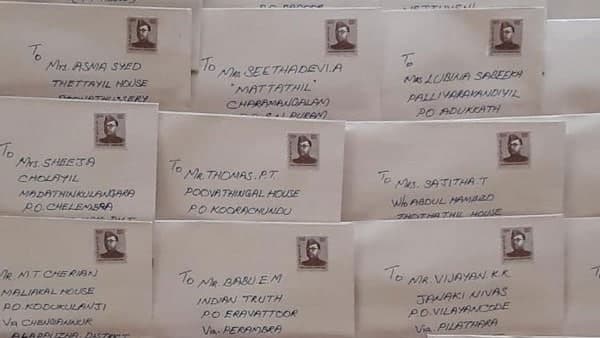 To
Mrs. ASMA SYED
THETTAYIL HOUSE
To
Mrs SEETHADEVI.A
"MATTATHIL"
CHARAMANGALAM
P.O. S.N. PURAM
To
Mrs LUBINA SABEEKA
PALLIYARAKANDIYIL
P.O. ADUKKATH
To
Mrs. SHEEJA
CHOLAYIL
MADATHINKULANGARA
P.O. CHELEMBRA
To
Mr. THOMAS. P.T.
POOVATHINGAL HOUSE
P.O. KOORACHUNDU
To
Mrs. SAJITHA.T
W/o ABDUL HAMEED
THOTTATHIL HOUSE
Mr. M.T CHERIAN
MALIAKAL HOUSE
P.O. KODUKULANJI
Via CHENGANNUR
ALAPPUZHA DISTRICT
To
Mr. BABU.E.M
INDIAN TRUTH
P.O ERAVATTOOR
Via. PERAMBRA
To
MR. VIJAYAN.K.K
JANAKI NIVAS
P.O. VILAYANCODE
Via. PILATHARA